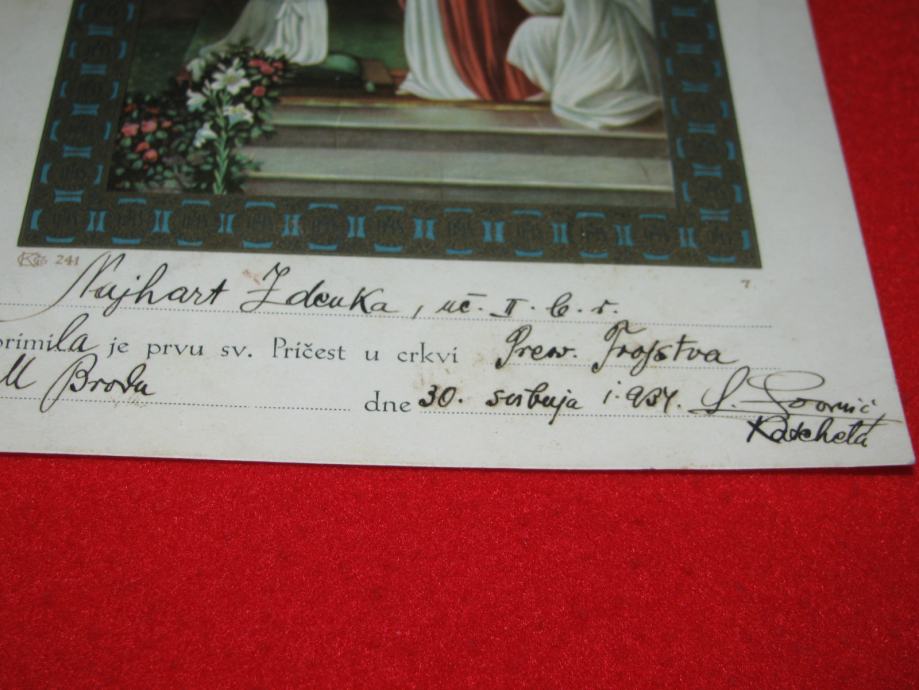 241
7
Najhart Zdenka, uč. II. b. r.
primila je prvu sv. Pričest u crkvi Presv. Trojstva
u Brodu dne 30. svibnja 1.934.
Katcheta